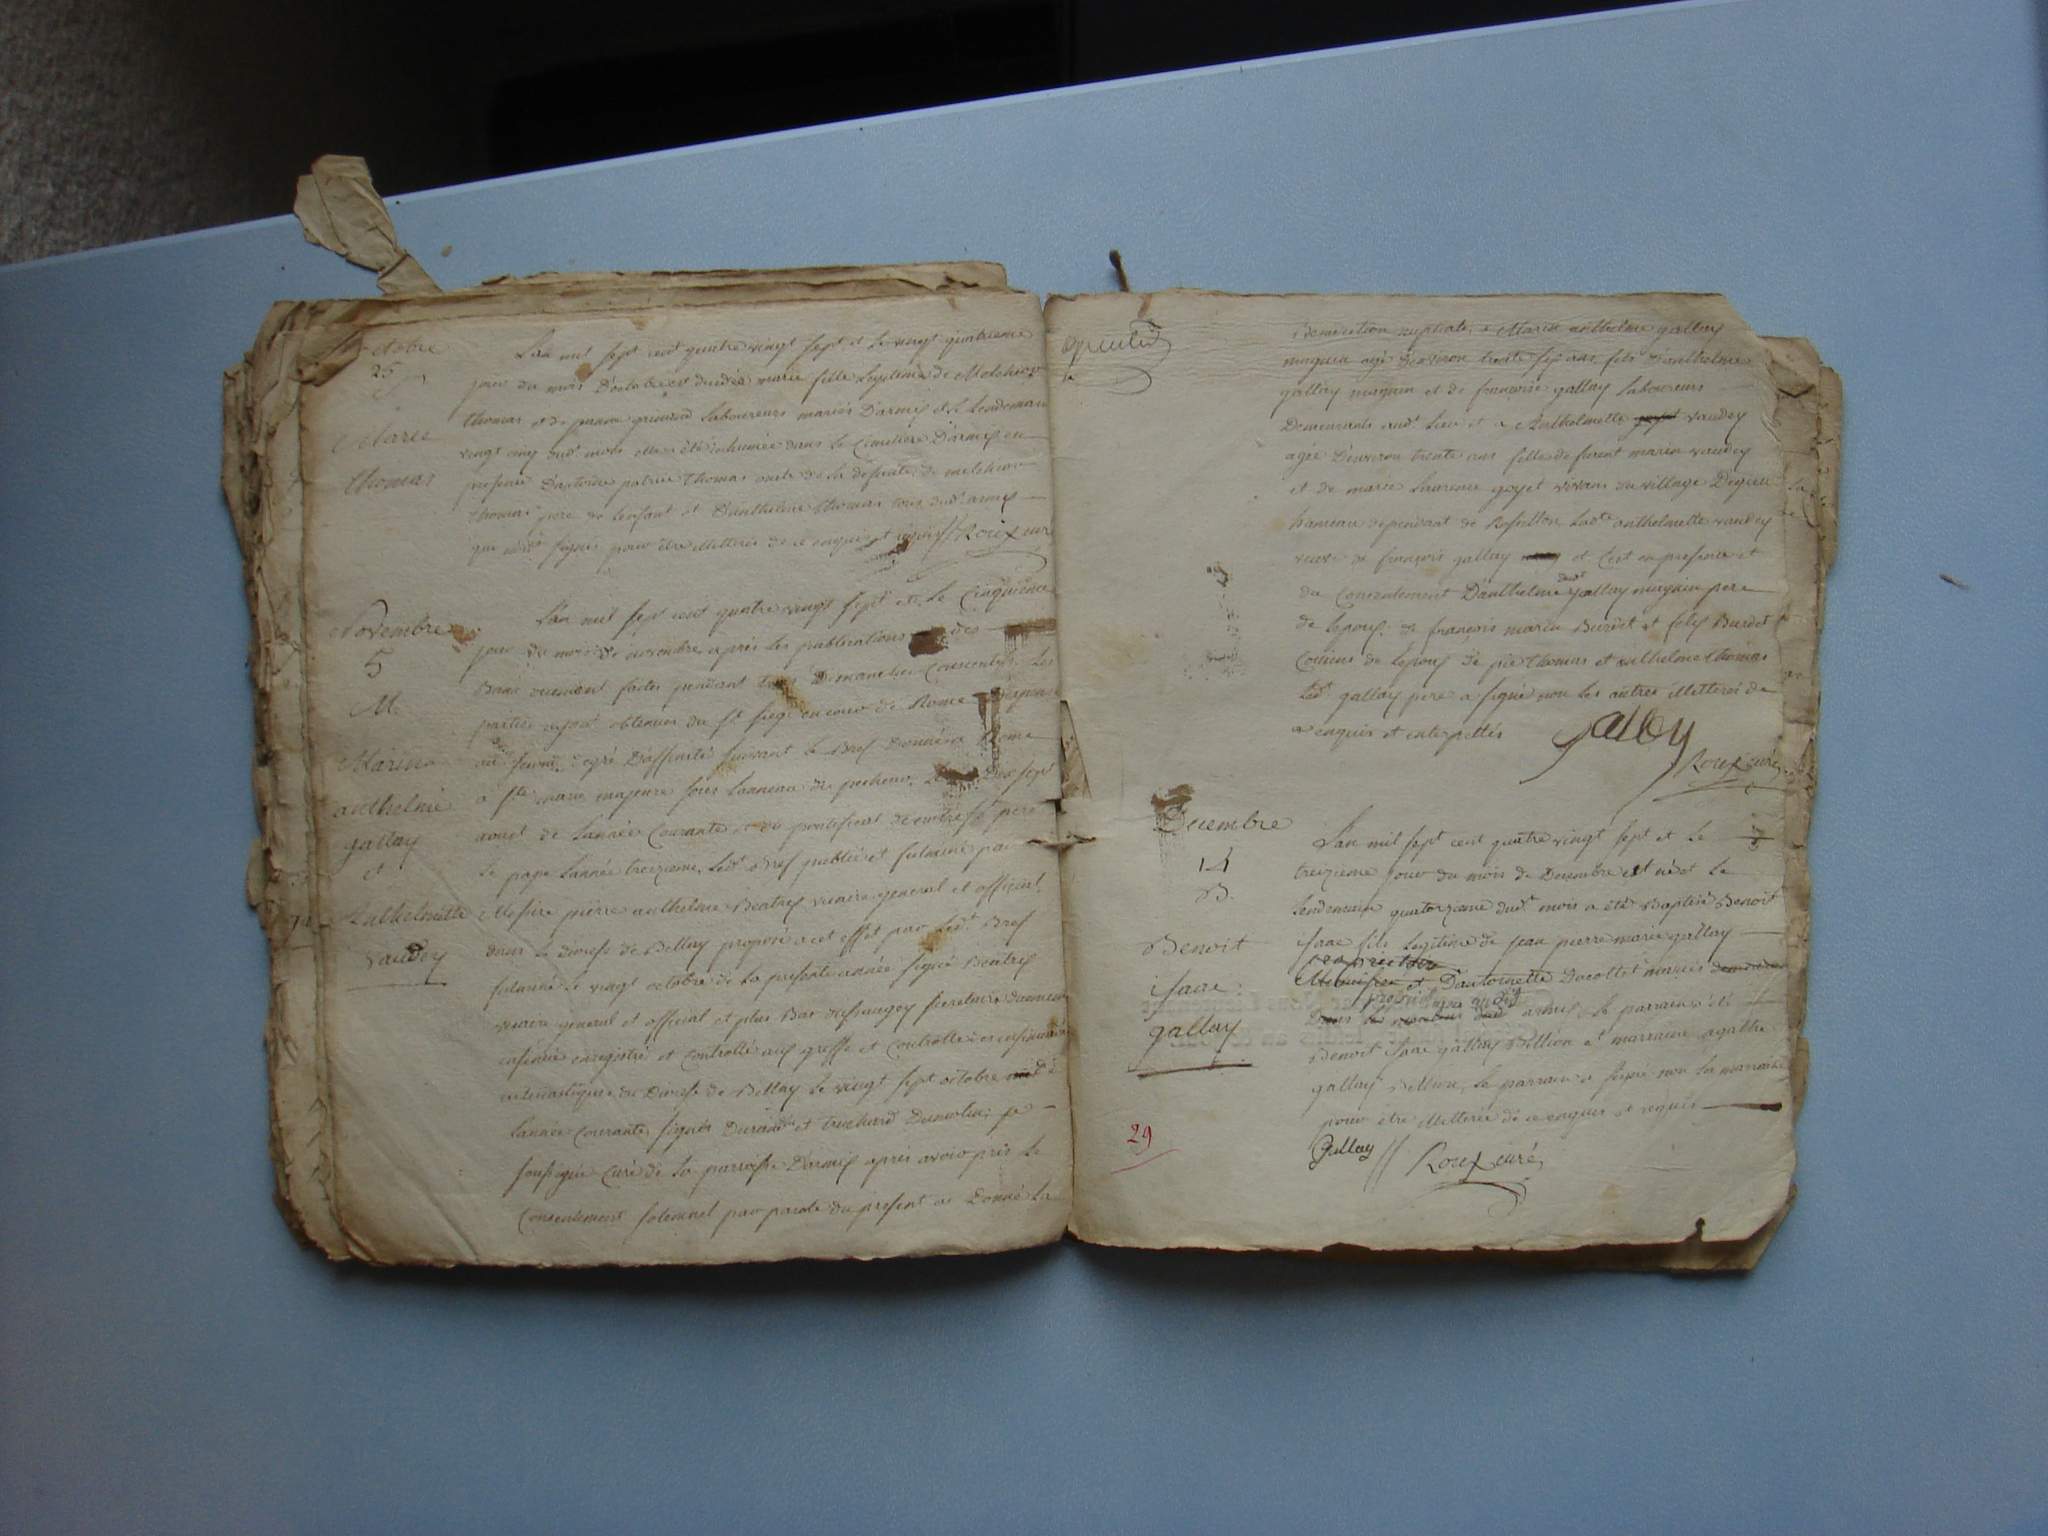 octobre
25
S
Marie
thomas
L'an mil sept cent quatre vingt sept et le vingt quatrieme
jour du mois d'octobre est decedée marie fille legitime de Melchior
thomas et de jeanne laboureurs mariés d'armix et le lendemain
vingt cinq dud. mois elle a été inhumée dans le cimetiere d'armix en
presence d'antoine patrice thomas oncle de la defunte, de melchior
thomas pere de l'enfant et d'anthelme thomas tous dud. armix
qui n'ont signés pour être illetterés de ce enquis et requis // Roux curé
Novembre
5
M.
Marin
anthelme
gallay
et
Anthelmette
vaudey
L'an mil sept cent quatre vingt sept et le cinquieme
jour du mois de novembre, apres les publications des
Bans duement faites pendant trois Dimanches consecutifs les
parties ayant obtenues du St siege en cour de Rome dispense
au degré d'affinité suivant le Bref donné à Rome
a ste marie majeure sous l'anneau du pecheur, le dix sept
aoust de l'année courante et du pontificat de notre st pere
le pape l'année treizieme, led. Bref publié et fulminé par
Messire pierre anthelme Beatrix vicaire general et official
dans le diocese de Bellay preposé a cet effet par led. Bref
fulminé le vingt octobre de la presente année signé Beatrix
vicaire general et official et plus Bas secretaire
insinué enregistré et controllé aux greffe et controlle des insinuations
ecclesiastiques du Diocese de Bellay le vingt sept octobre de
l'année courante signés Durand et truchard Dumolin; je
soussigné curé de la parroisse d'armix apres avoir pris le
consentement solemnel par parole du present ai donné la
Benediction nuptiale, a Marin anthelme gallay
magnin agé d'environ trente six ans fils d'anthelme
gallay magnin et de françoise gallay laboureurs
Demeurants aud. lieu et a Anthelmette vaudey
agée d'environ trente ans fille de furent marin vaudey
et de marie laurence goyet vivans du village Degieu
hameau dependant de Rossillon lad.e anthelmette vaudey
veuve de françois gallay et c'est en presence et
du consentement D'anthelme gallay magnin pere
de l'epoux, de françois marin Burdet et felix Burdet
cousins de l'epoux de pierre thomas et anthelme thomas
led. gallay pere a signé non les autres illetterés de
ce enquis et interpellés
gallay
Roux curé
Decembre
14
B.
Benoit
isaac
gallay
29
L'an mil sept cent quatre vingt sept et le
treizieme jour du mois de Decembre est né et le
lendemain quatorzieme dud. mois a été Baptisé Benoit
isaac fils legitime de jean pierre marie gallay
et D'antoinette Dacollet mariés
armix, le parrain a été
Benoit isaac gallay Billion et marraine agathe
gallay Billion, le parrain a signé non la marraine
pour être illetterée de ce enquis et requis
Gallay // Roux curé